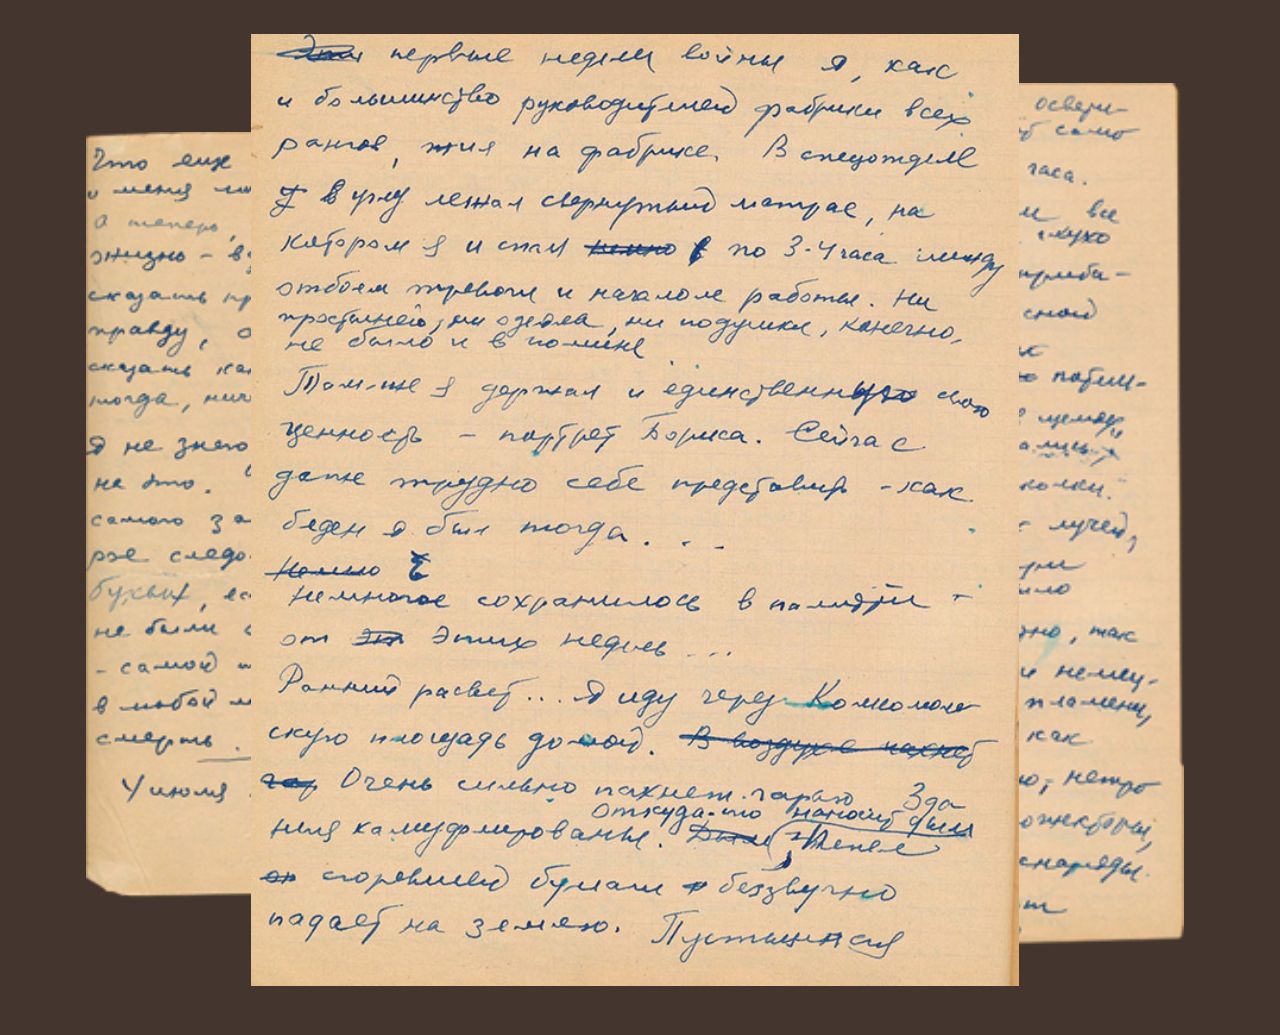 Что еще
у меня
а теперь,
жизнь – в
сказать пр
правду, о
сказать ка
тогда, нич
Я не знаю
не это.
самого за
рое следо
буквы, ес
не были с
- самой
в любой м
смерть.
У июля
Эти первые недели войны я, как
и большинство руководителей фабрики всех
рангов, жил на фабрике. В спецотделе
в углу лежал свернутый матрас, на
котором я и спал по 3-4 часа между
отбоем тревоги и началом работы. Ни
простыней, ни одеяла, ни подушки, конечно,
не было и в помине
Там-же я держал и единственную свою
ценность – портрет Бориса. Сейчас
даже трудно себе представить – как
беден я был тогда....
Немно
Немногое сохранилось в памяти –
от этих недель...
Ранний расвет... Я иду через Комсомоль-
скую площадь домой. В воздухе пахнет
гар Очень сильно пахнет гарью Зда-
откуда-то наносит дым
ния камуфлированы. Дым Пепел
сгоревшей бумаги беззвучно
падает на землю. Пустынная
освети-
само
часа.
все
глухо
приба-
сной
между
лучей,
было
но, так
и немец-
пламени,
как
снаряды.